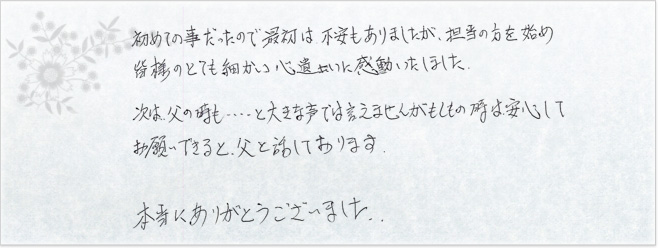 初めての事だったので最初は不安もありましたが、担当の方を始め
皆様のとても細かい心遣いに感動いたしました。
次は、父の時も・・・・・と大きな声では言えませんがもしもの時は安心して
お願いできると、父と話しております。
本当にありがとうございました。